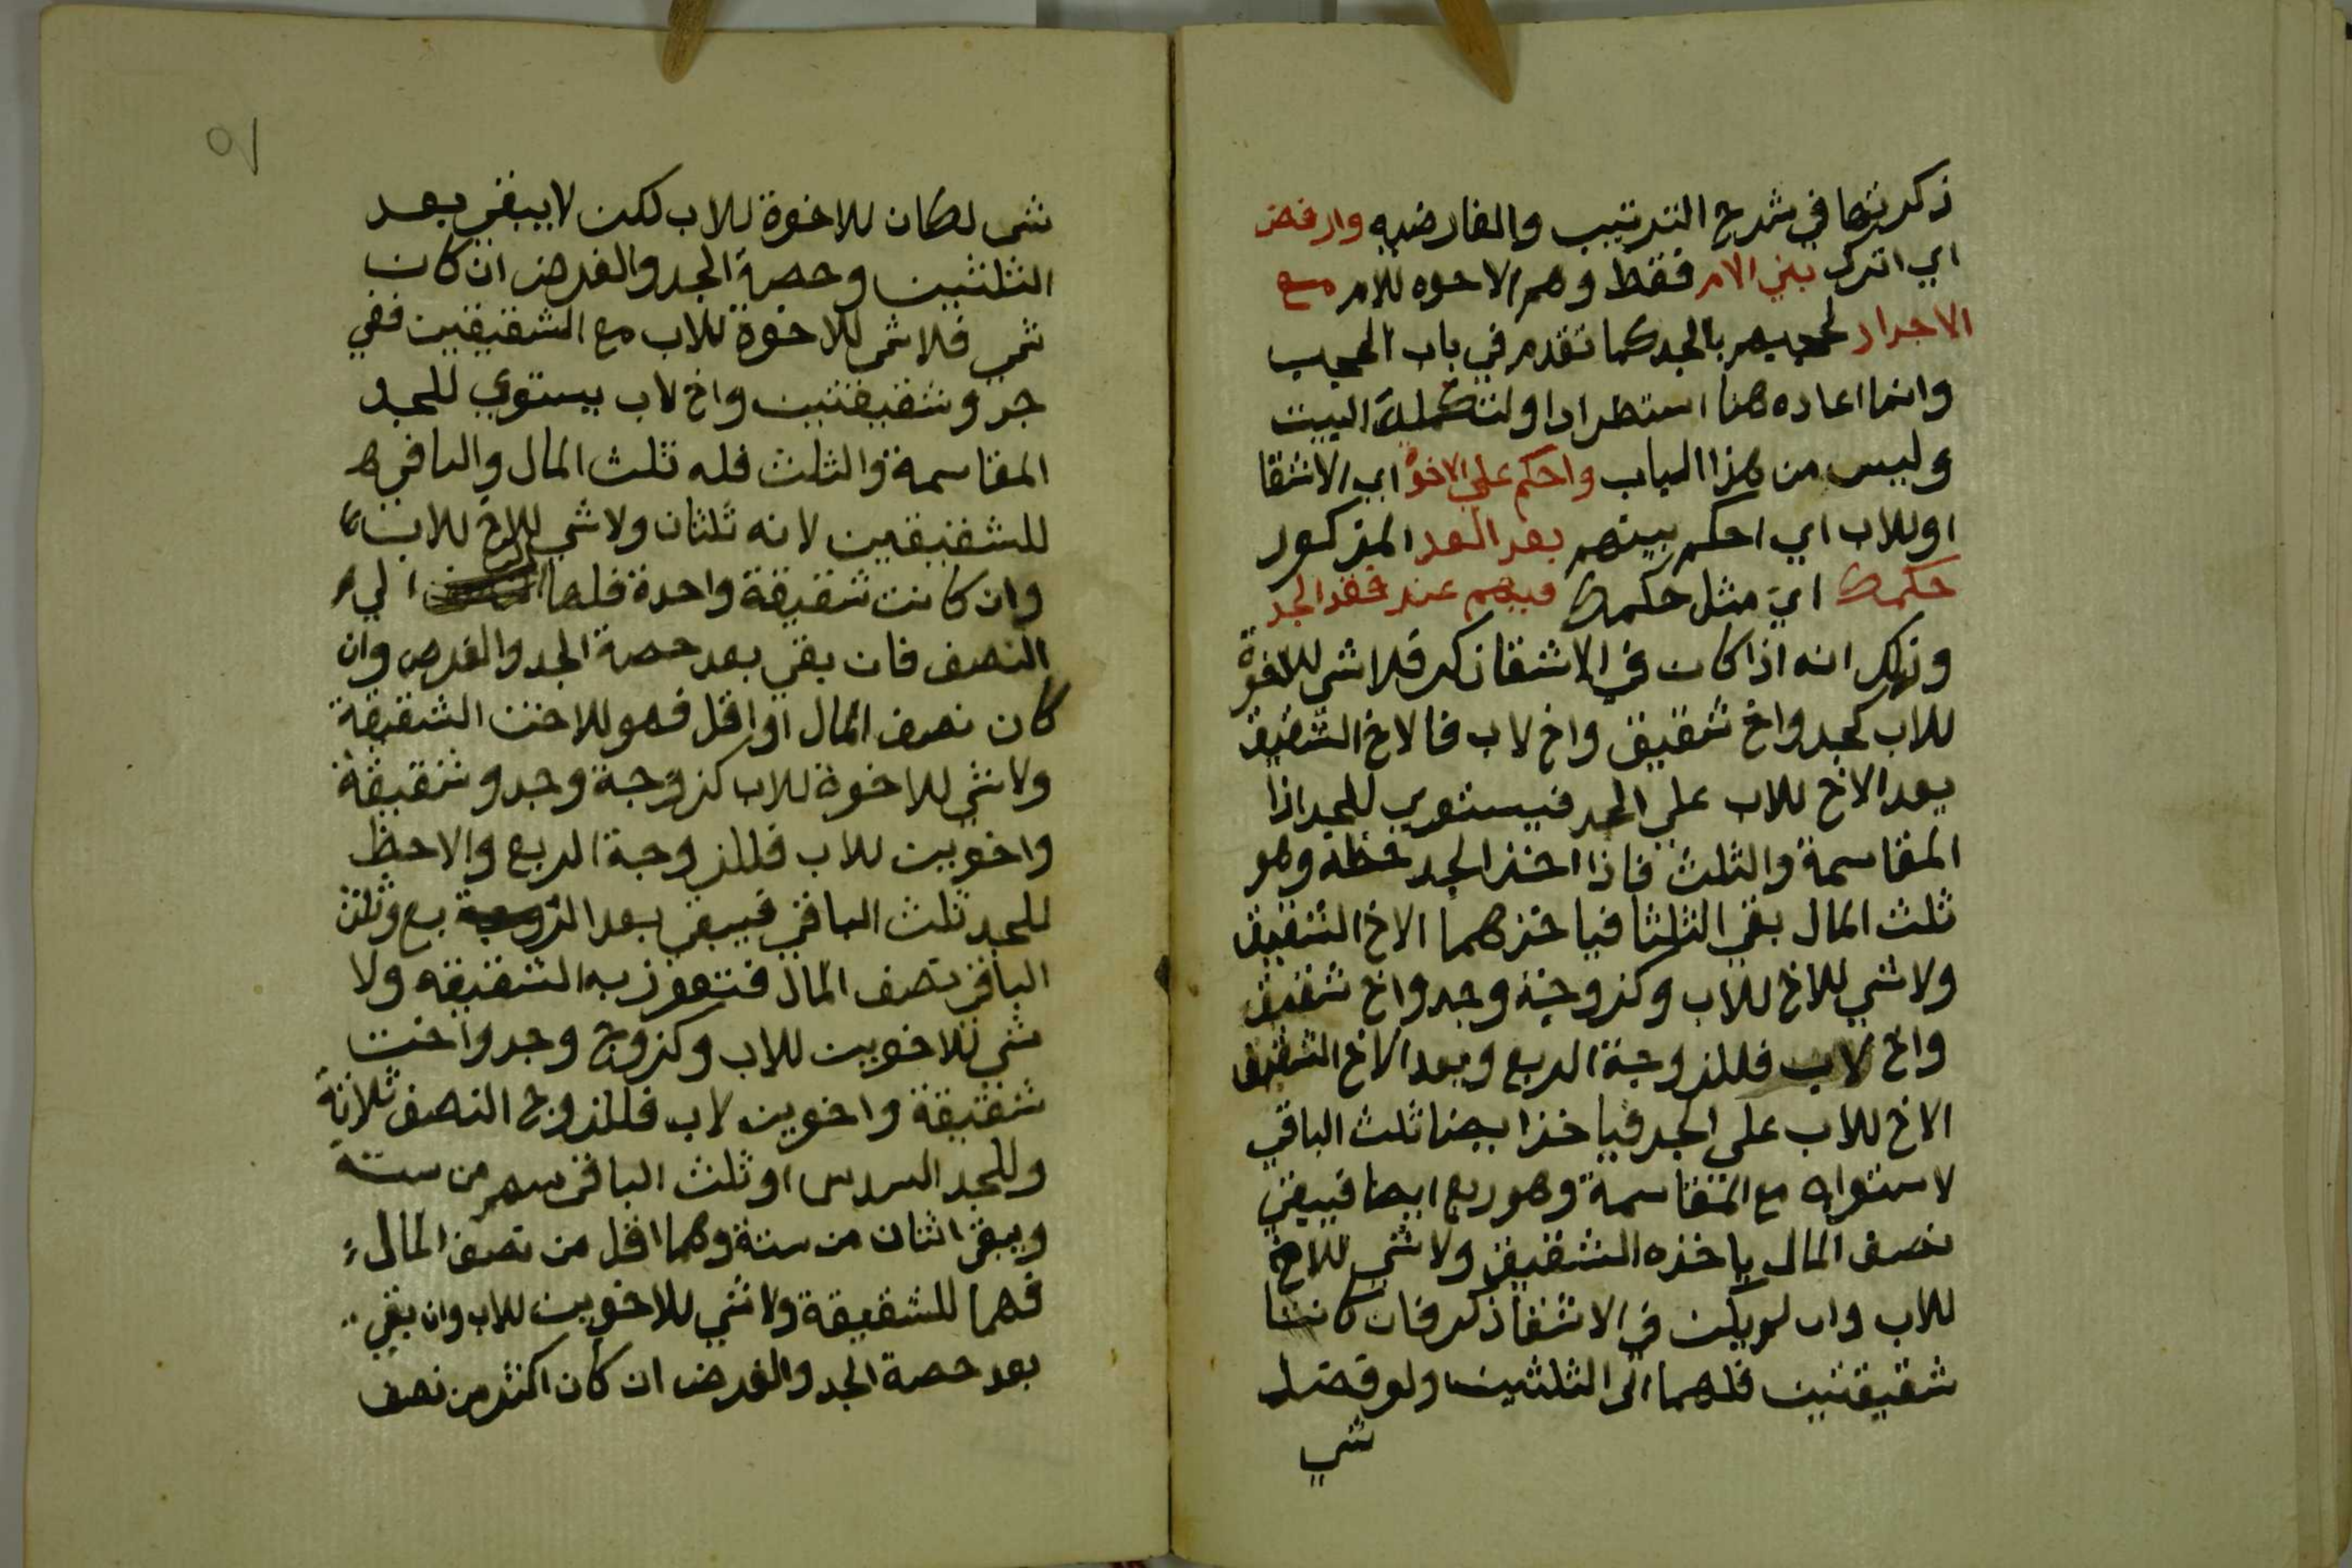 ذكرتها في شرح الترتيب والفارضيه وارفض
اي اترك بني الام فقط وهم الاخوه للام مع
الاجداد لحجبهم بالجد كما تقدم في باب الحجب
وانما اعاده هنا استطرادا ولتكملة البيت
وليس من هذا الباب واحكم علي الاخوة اي الاشقا
او للاب اي احكم بينهم بعد العد المذكور
حكمك اي مثل حكمك فيهم عند فقد الجد
وذلك انه اذا كان في الاشقا ذكر فلا شي للاخوة
للاب كجد واخ شقيق واخ لاب فالاخ الشقيق
يعد الاخ للاب علي الجد فيستوي للجد اذا
المقاسمة والثلث فاذا اخذ الجد حظه وهو
ثلث المال بقي الثلثا فياخذهما الاخ الشقيق
ولا شي للاخ للاب وكزوجة وجد واخ شقيق
واخ لاب فللزوجة الربع ويعد الاخ الشقيق
الاخ للاب على الجد فياخذ ايضا ثلث الباقي
لاستوايه مع المقاسمة وهو ربع ايضا فيبقي
نصف المال ياخذه الشقيق ولا شي للاخ
للاب وان لم يكن في الاشقا ذكر فان كانتا
شقيقتين فلهما الى الثلثين ولو فضل
شي
٥١
شي لكان للاخوة للاب لكن لا يبقي بعد
الثلثين وحصة الجد والفرض ان كان
شي فلا شي للاخوة للاب مع الشقيقين ففي
جد وشقيقتين واخ لاب يستوي للجد
المقاسمة والثلث فله ثلث المال والباقي
للشقيقين لانه ثلثان ولا شي للاخ للاب
وان كانت شقيقة واحدة فلها الي
النصف فان بقي بعد حصة الجد والفرض وان
كان نصف المال او اقل فهو للاخت الشقيقة
ولا شي للاخوة للاب كزوجة وجد وشقيقة
واخوين للاب فللزوجة الربع والاحظ
للجد ثلث الباقي فيبقي بعد الربع وثلث
الباقي نصف المال فتفوز به الشقيقه ولا
شي للاخوين للاب وكزوج وجد واخت
شقيقة واخوين لاب فللزوج النصف ثلاثة
وللجد السدس او ثلث الباقي سهم من ستة
ويبقى اثنان من ستة وهما اقل من نصف المال
فهما للشقيقة ولا شي للاخوين للاب وان بقي
بعد حصة الجد والفرض ان كان اكثر من نصف